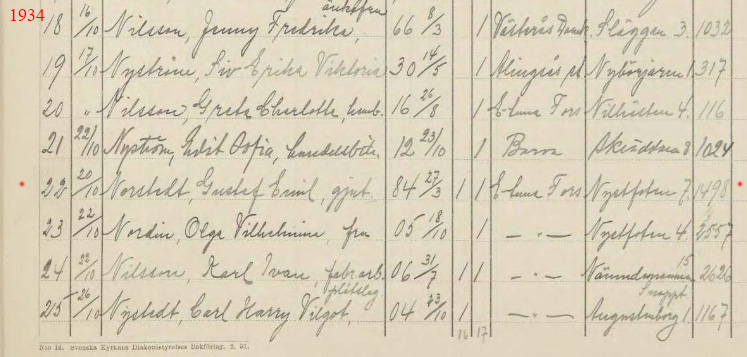 1934
18 16/10 Nilsson, Jenny Fredrika, änkefru 66 8/3 1 Västerås Domk. Släggan 3. 1032
19 17/10 Nyström, Siv Erika Viktoria 30 14/5 1 Alingsås st. Nybörjaren 1. 317
20 " Nilsson, Greta Charlotte, hemb. 16 26/8 1 E-tuna Fors 4. 116
21 22/10 Nyström, Edit Sofia, 12 23/10 1 Barva 8. 1024
22 20/10 Norstedt, Gustaf Emil, gjut. 84 27/3 1 1 E-tuna Fors Nystfoten 7. 1498
23 22/10 Nordin, Olga Vilhelmina, fru 05 18/10 1 — " — Nystfoten 4. 2557
24 22/10 Nilsson, Karl Ivan, fabr.arb. 06 31/7 1 1 — " — 15 2626
25 26/10 Nystedt, Carl Harry Vilgot, plåtslag. 04 23/10 1 — " — Augustenborg 1. 1167
16 17
N:o 18. Svenska Kyrkans Diakonistyrelses Bokförlag. 2. 31.